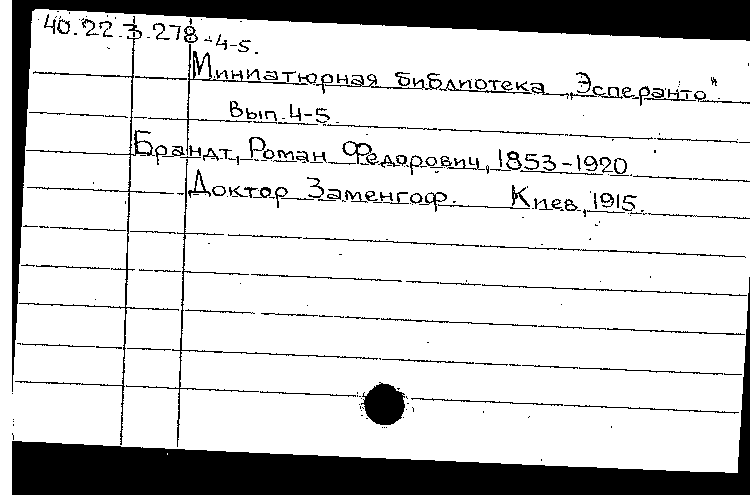 40.22.3.278-4-5.
Миниатюрная библиотека „Эсперанто".
Вып. 4-5.
Брандт, Роман Федорович, 1853-1920
Доктор Заменгоф. Киев, 1915.